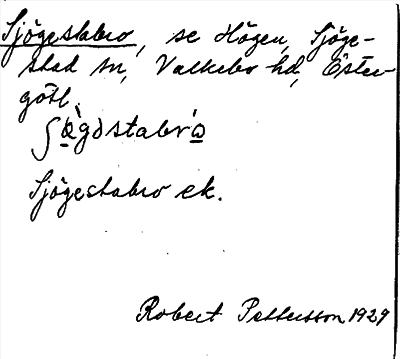 Sjögestabro, se Högen, Sjöge-
stad sn, Valkebo hd, Öster-
götl.
ʃö̀gəstabrò
Sjögestabro ek.
Robert Pettersson 1929